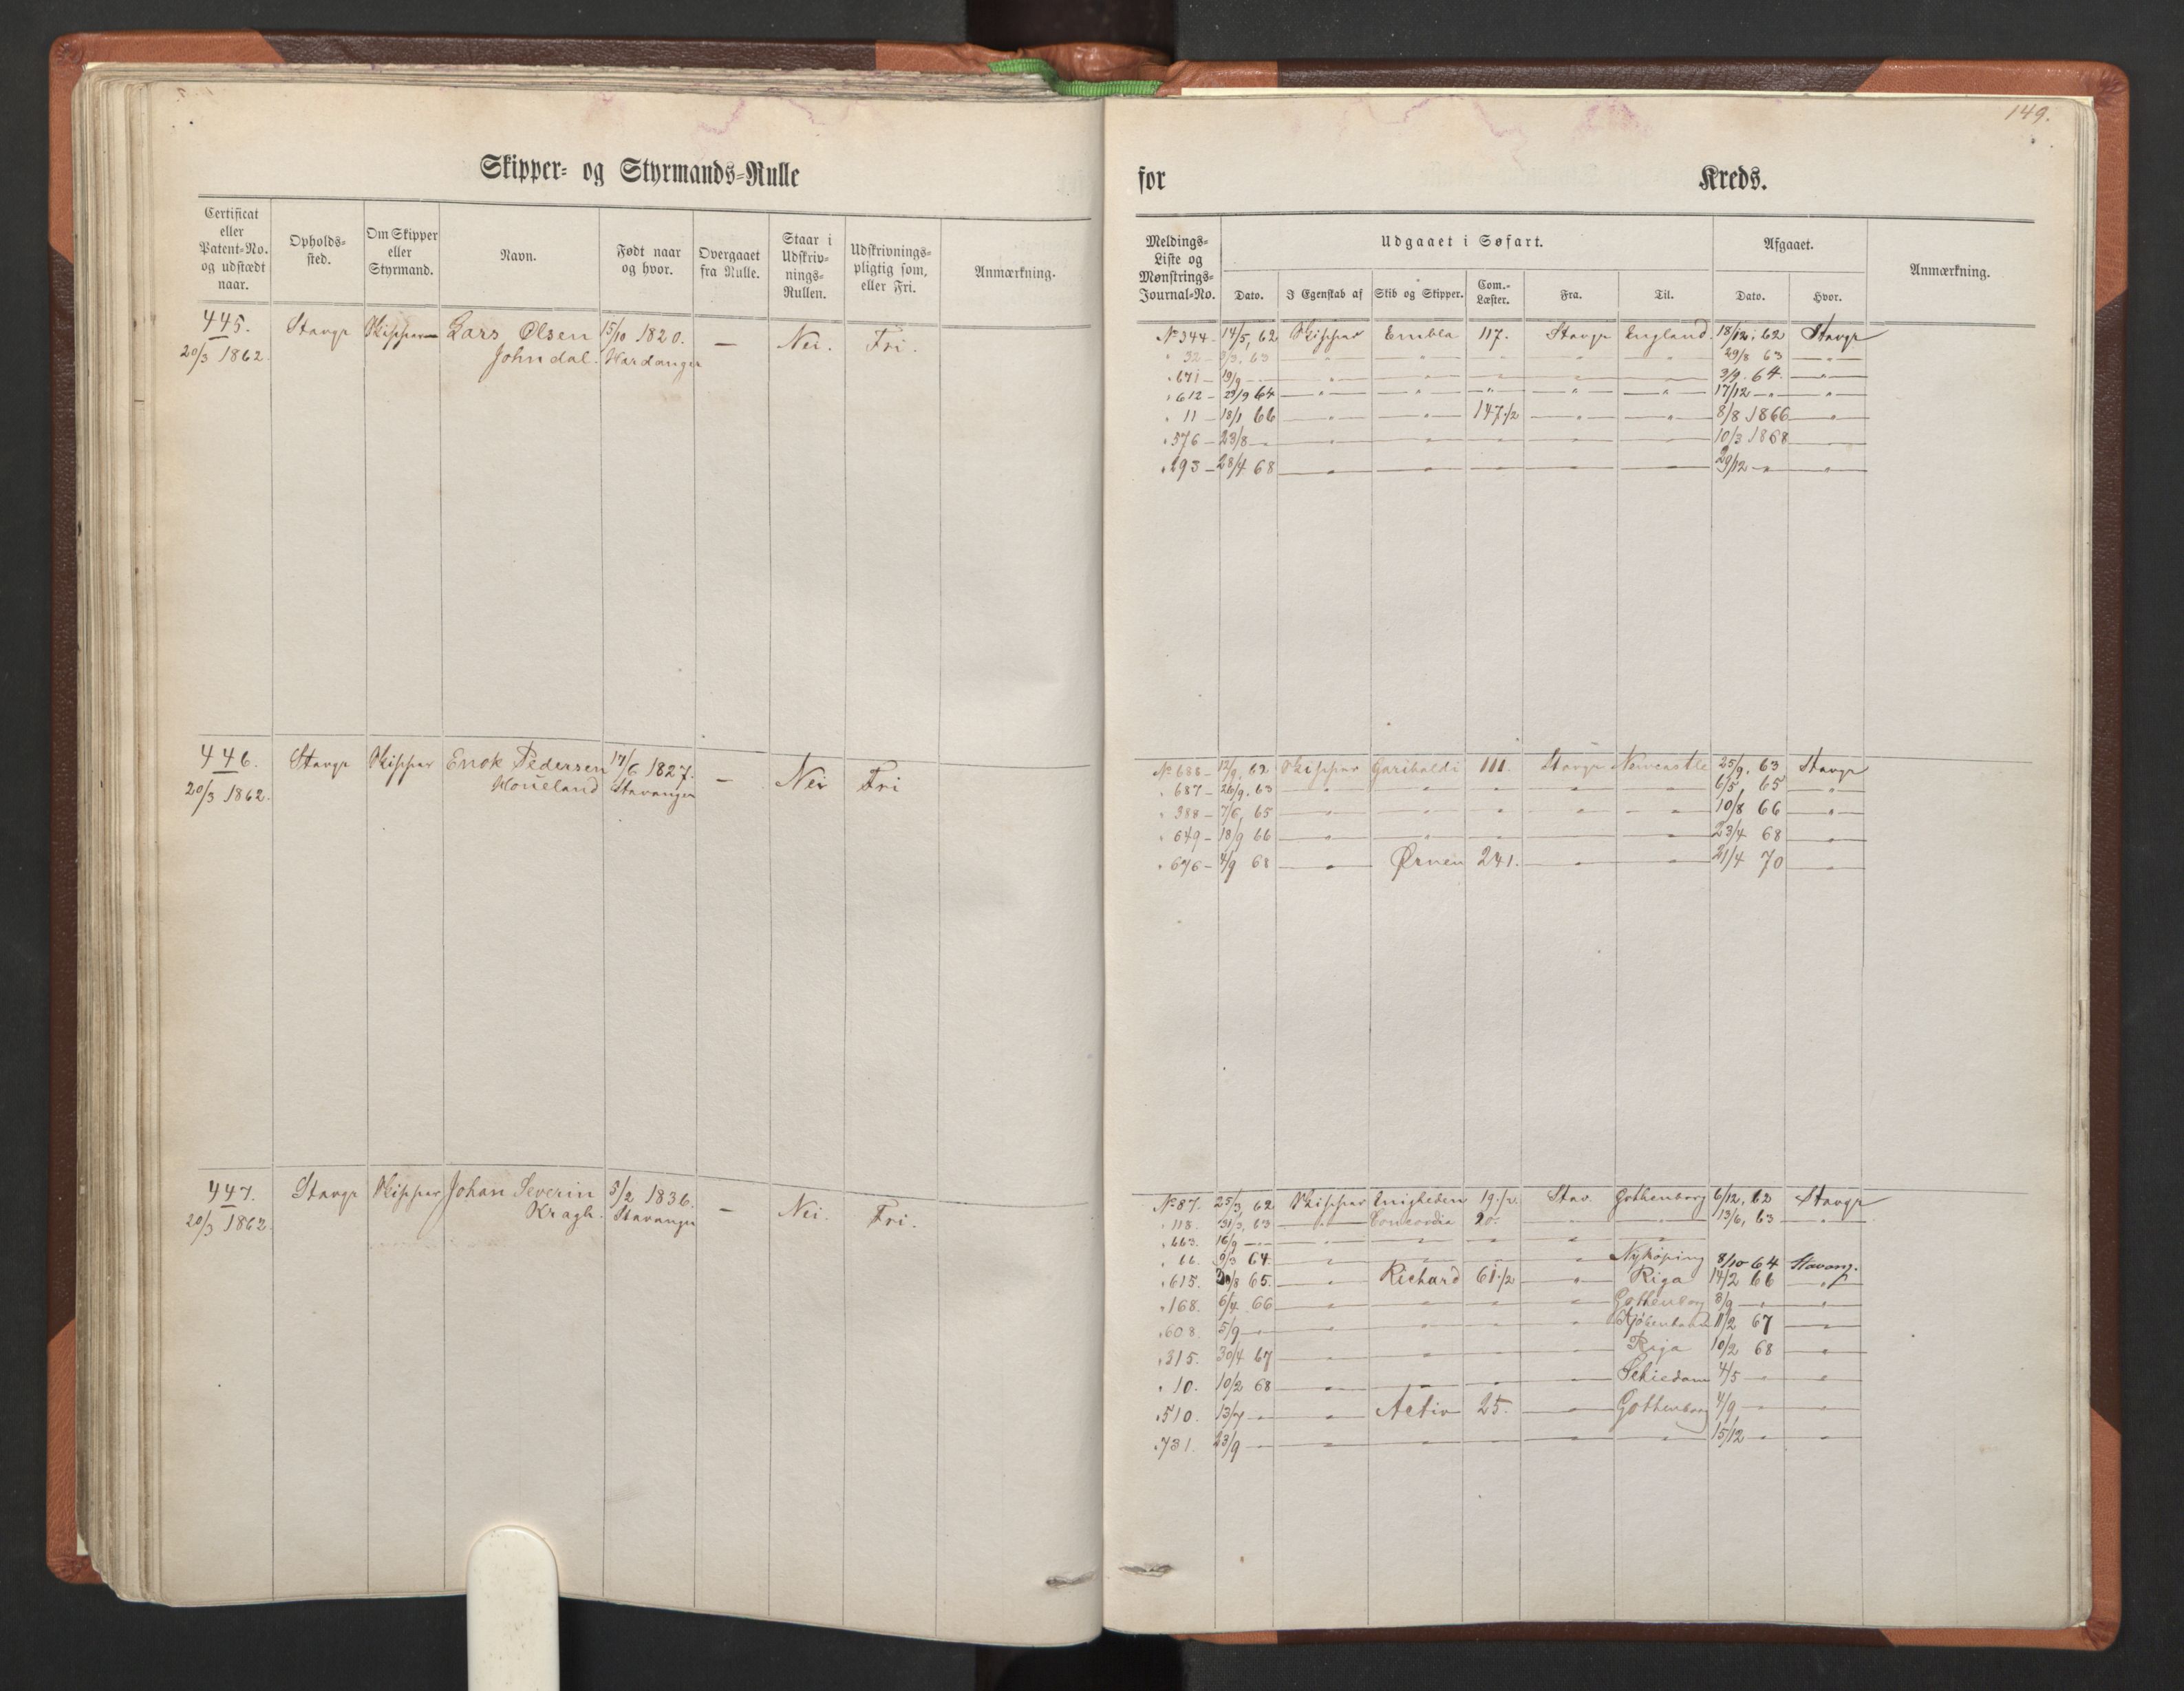 149.
Skipper- og Styrmands-Rulle
for Kreds.
Certificat eller Patent-No. og udstædt naar.
Opholds-sted.
Om Skipper eller Styrmand.
Navn.
Født naar og hvor.
Overgaaet fra Rulle.
Staar i Udskriv-nings-Rullen.
Udskrivnings-pligtig som, eller Fri.
Anmærkning.
Meldings-Liste og Mønstrings-Journal-No.
Udgaaet i Søfart.
Dato.
I Egenskab af
Skib og Skipper.
Com.-Læster.
Fra.
Til.
Afgaaet.
Dato.
Hvor.
Anmærkning.
445. Stavgr Skipper Lars Olsen 15/10 1820. — Nei. Fri.
20/3 1862. Johndal. Hardanger
No 344 14/5, 62 Skipper Embla 117. Stavgr England 18/12, 62 Stavgr
" 32 - 3/3. 63 " " " " " 29/8 63 "
" 671 - 19/9 - " " " " " 3/9. 64. "
" 612 - 29/9 64 " " " " " 17/12 - " "
" 11 - 18/1 66 " " 147 1/2 " " 8/8 1866 "
" 576 - 23/8 - " " " " " 10/3 1868
" 293 - 28/4 68 " " " " " 29/12 - " "
446. Stavgr Skipper Enok Pedersen 17/6 1827. — Nei Fri
20/3 1862. Houeland Stavanger
No 686 - 12/9, 62 Skipper Garibaldi 111. Stavgr Newcastle 25/9, 63 Stavgr
" 687 - 26/9. 63 " " " " " 6/5, 65 "
" 388 - 7/6, 65 " " " " " 10/8 66 "
" 649 - 18/9 66 " " " " " 23/4 68 "
" 676 - 4/9 68 " Ørnen 241. " " 21/4 70 "
447. Stavgr Skipper Johan Severin 5/2 1836. — Nei. Fri.
20/3 1862. Kragh. Stavanger
No 87. 25/3, 62 Skipper Enigheden 19 1/2 Stav. Gothenborg 6/12, 62 Stavgr
" 118. 31/3, 63 " Concordia 20. " " 13/6, 63 "
" 663. 16/9 - " " " " "
" 66. 9/3 64. " " " " Nykøping 8/10 64 Stavang.
" 615. 30/8 65. " Richard 61 1/2 " Riga 14/2 66 "
" 168. 6/4 66 " " " " Gothenborg 8/9 - " "
" 608. 5/9 - " " " " Kjøbenhavn 11/2 67 "
" 315. 30/4 67 " " " " Riga 10/2 68 "
" 10. 10/2 68 " " " " Schiedam 4/5 - " "
" 510. 13/7 - " " Activ 25. " Gothenborg 4/9 - " "
" 731. 23/9 - " " " " " 15/12 - " "